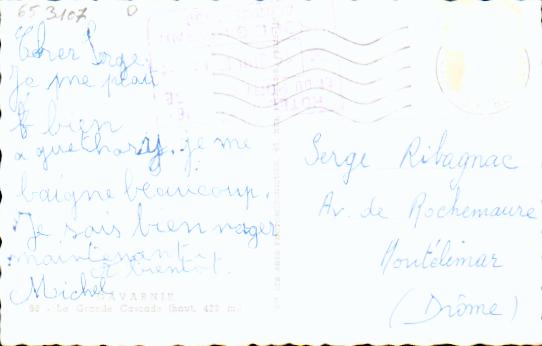 65 3107 D
Cher Serge
Je me plait
bien
a guethary. je me
baigne beaucoup.
Je sais bien nager
maintenant.
A bientot.
Michel
GAVARNIE
La Grande Cascade (haut. 422 m.)
Serge Ribagnac
Av. de Rochemaure
Montélimar
(Drôme)